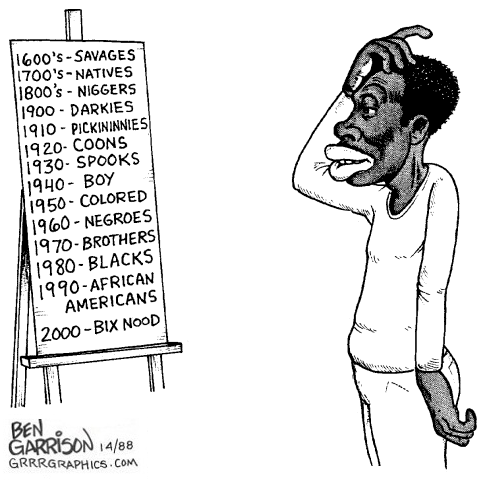 1600's-SAVAGES
1700's-NATIVES
1800's-NIGGERS
1900-DARKIES
1910-PICKININNIES
1920-COONS
1930-SPOOKS
1940- BOY
1950-COLORED
1960-NEGROES
1970-BROTHERS
1980-BLACKS
1990-AFRICAN
AMERICANS
2000-BIX NOOD
BEN
GARRISON 14/88
GRRRGRAPHICS.COM